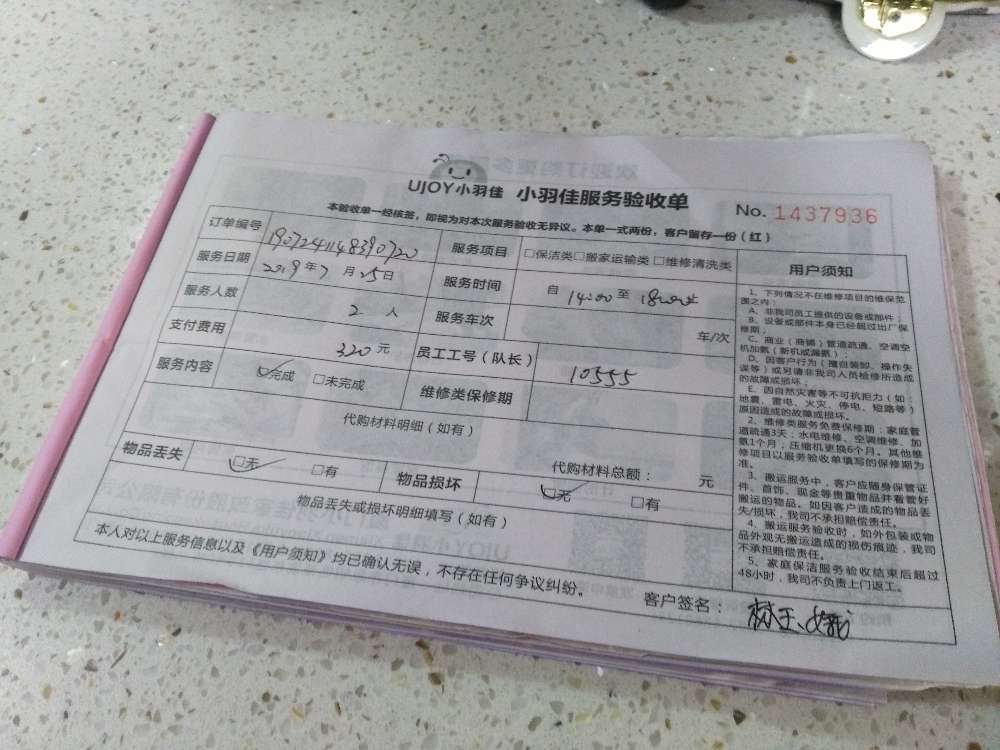 UJOY小羽佳 小羽佳服务验收单 No. 1437936
本验收单一经核签，即视为对本次服务验收无异议。本单一式两份，客户留存一份（红）
订单编号 1907241148390720 服务项目 □保洁类□搬家运输类□维修清洗类
服务日期 2019年7月25日 服务时间 自 14:00 至 18:00
服务人数 2 人 服务车次 车/次
支付费用 320元 员工工号（队长） 10555
服务内容 □完成 □未完成 维修类保修期
代购材料明细（如有）
代购材料总额： 元
物品丢失 □无 □有 物品损坏 □无 □有
物品丢失或损坏明细填写（如有）
本人对以上服务信息以及《用户须知》均已确认无误，不存在任何争议纠纷。
客户签名：
用户须知
1、下列情况不在维修项目的维保范
围之内：
A、非我司员工提供的设备或部件；
B、设备或部件本身已经超过出厂保
修期；
C、商业（商铺）管道疏通、空调空
机加氨（新机或漏氨）；
D、因客户行为（擅自装卸、操作失
误等）或另请非我司人员检修所造成
的故障或损坏；
E、因自然灾害等不可抗拒力（如：
地震、雷电、火灾、停电、短路等）
原因造成的故障或损坏。
2、维修类服务免费保修期：家庭管
道疏通3天；水电维修、空调维修、加
氨1个月；压缩机更换6个月。其他维
修项目以服务验收单填写的保修期为
准。
3、搬运服务中，客户应随身保管证
件、首饰、现金等贵重物品并看管好
搬运的物品。如因客户造成的物品丢
失/损坏，我司不承担赔偿责任。
4、搬运服务验收时，如外包装或物
品外观无搬运造成的损伤痕迹，我司
不承担赔偿责任。
5、家庭保洁服务验收结束后超过
48小时，我司不负责上门返工。